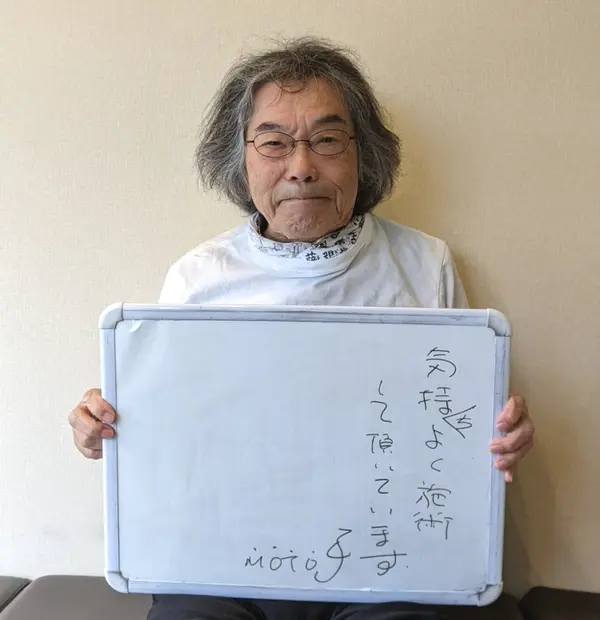 気持ちよく施術
して頂いています